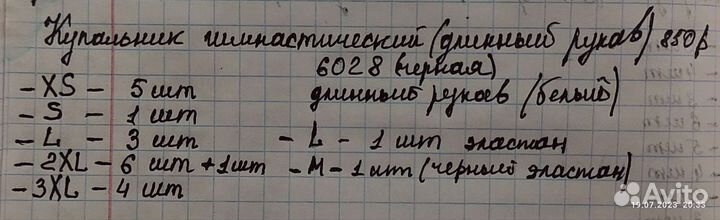 Купальник гимнастический (длинный рукав) 850р
6028 (черная)
- XS - 5 шт
длинный рукав (белый)
- S - 1 шт
- L - 3 шт
- L - 1 шт эластан
- 2XL - 6 шт + 1 шт
- M - 1 шт (черный эластан)
- 3XL - 4 шт
Avito
19.07.2023 20:33